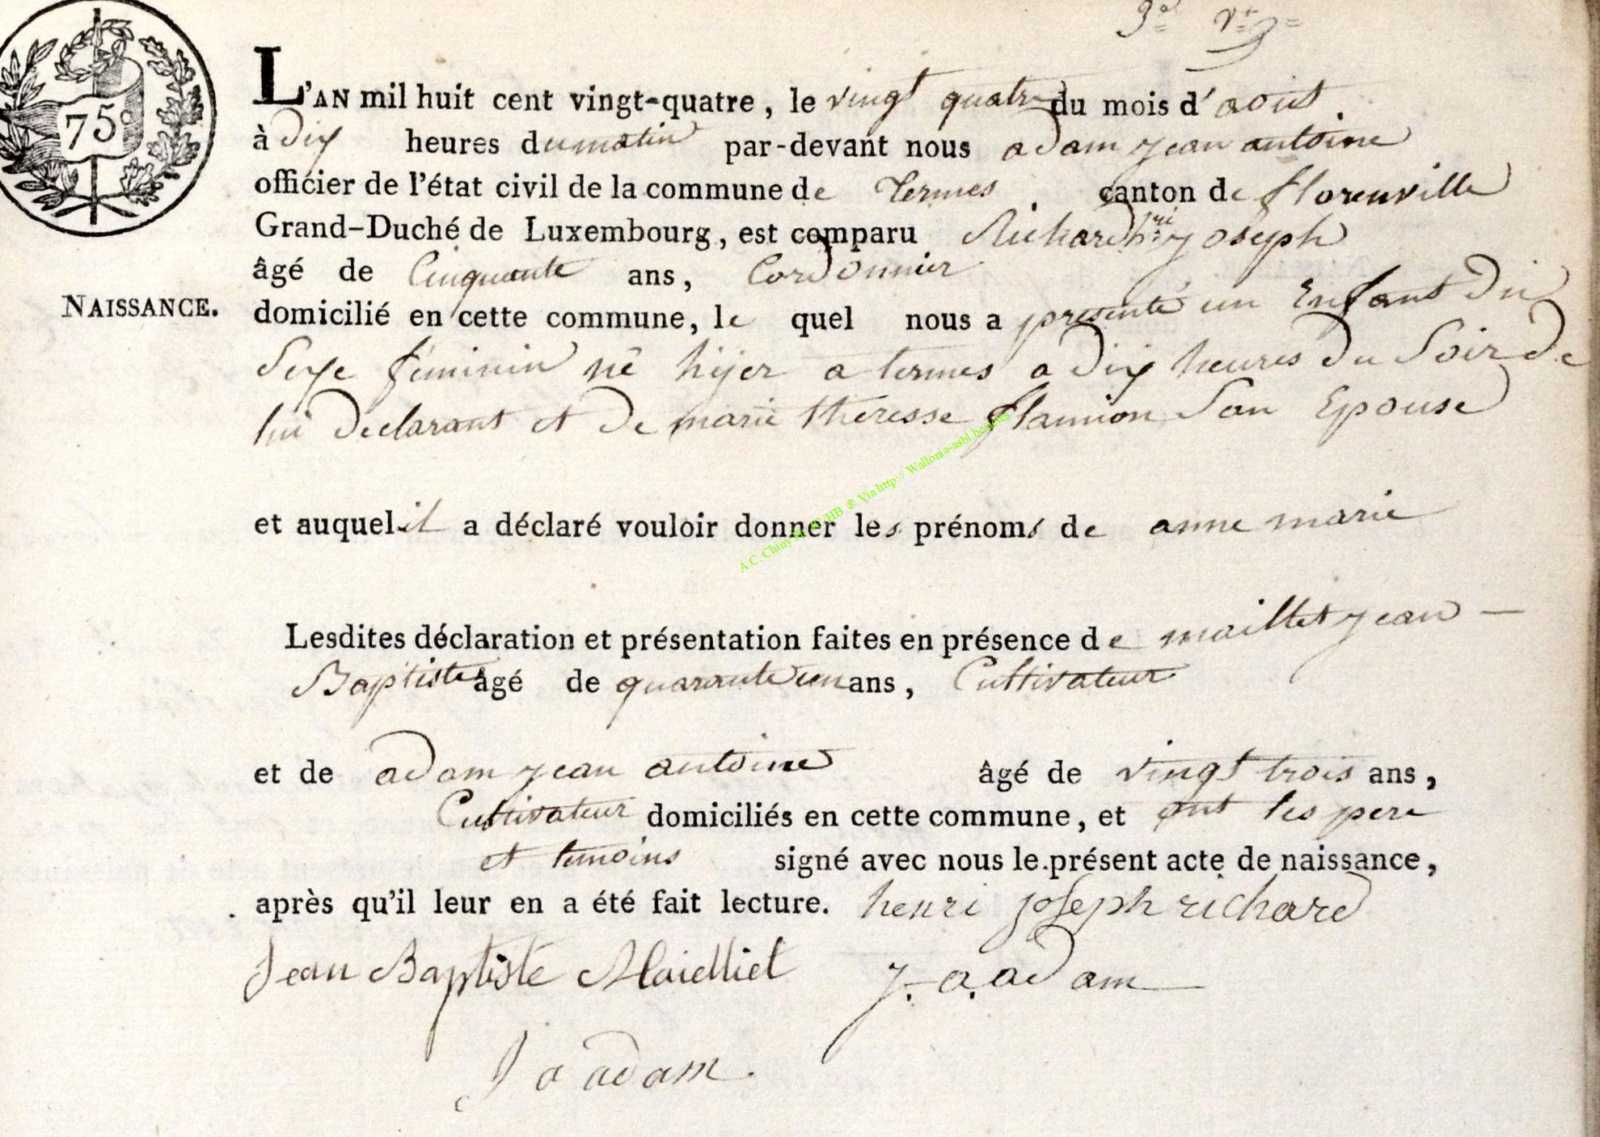 75c
L'AN mil huit cent vingt-quatre, le vingt quatre du mois d'aout
à dix heures du matin par-devant nous adam jean antoine
officier de l'état civil de la commune de termes canton de florenville
Grand-Duché de Luxembourg, est comparu Richard hri joseph
âgé de Cinquante ans, Cordonnier
NAISSANCE.
domicilié en cette commune, le quel nous a presenté un Enfant du
Sexe féminin né hijer a termes a dix heures du Soir de
lui declarant et de marie theresse flamion Son Epouse
et auquel il a déclaré vouloir donner les prénoms de anne marie
Lesdites déclaration et présentation faites en présence de maillet jean –
Baptiste âgé de quarante un ans, Cultivateur
et de adam jean antoine âgé de vingt trois ans,
Cultivateur domiciliés en cette commune, et ont les pere
et temoins signé avec nous le présent acte de naissance,
après qu'il leur en a été fait lecture. henri joseph richard
Jean Baptiste Maielliet j. a. adam
J a adam.